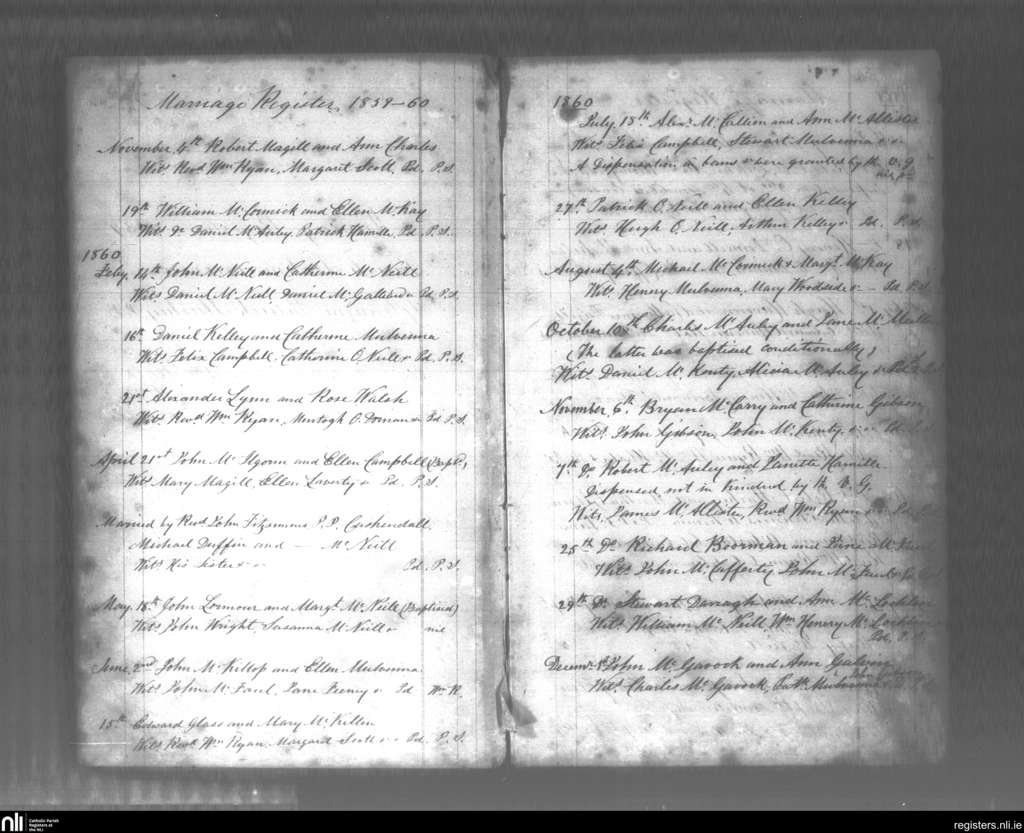 Marriage Register 1859-60
November 4th Robert Magill and Ann Charles
Wits Revd Wm Ryan, Margaret Scott, Pd. P.S.
19th William McCormick and Ellen McKay
Wits Dr Daniel McAuley, Patrick Hamill, Pd. P.S.
1860
Feby. 14th John McNeill and Catherine McNeill
Wits Daniel McNeill, Daniel Pd. P.S.
16th Daniel Kelley and Catherine Mulvenna
Wits Felix Campbell, Catherine O'Neill Pd. P.S.
21st Alexander Lynn and Rose Walsh
Wits Revd Wm Ryan, Murtagh O. Pd P.S.
April 21st John and Ellen Campbell
Wits Mary Magill, Ellen Laverty Pd. P.S.
Married by Revd John Fitzsimons P.P. Cushendall
Michael Duffin and — McNeill
Wits His Sister Pd. P.S.
May 18th John and Margt. McNeill (Baptised)
Wits John Wright, Susanna McNeill nil
June 2nd John McKillop and Ellen Mulvenna
Wits John McFaul, Jane Feeny Pd Wm R.
15th Edward Glass and Mary McKillen
Wits Revd Wm Ryan, Margaret Scott Pd. P.S.
1860
July 18th Alexr McCallion and Ann McAllister
Wits Felix Campbell, Stewart Mulvenna
A Dispensation in banns were granted by the V.G.
27th Patrick O'Neill and Ellen Kelley
Wits Hugh O'Neill, Arthur Kelley Pd. P.S.
August 4th Michael McCormick & Margt. McKay
Wits Henry Mulvenna, Mary Woodside — Pd. P.S.
October 10th Charles McAuley and Jane
(The latter was baptised conditionally)
Wits Daniel McKenty, Alicia McAuley
November 6th Bryan McCarry and Catherine Gibson
Wits John Gibson, John McKenty
7th Dr Robert McAuley and Hamill
Dispensed not in Kindred by the V.G.
Wits James McAllister, Revd Wm Ryan
25th Do Richard Boorman and Jane
Wits John McCafferty, John McFaul
29th Do Stewart Darragh and Ann McLochlin
Wits William McNeill, Wm Henry McLochlin
Pd. P.S.
Decemr. John McGavock and Ann Galvin
Wits Charles McGavock, Patk Mulvenna
nli
Catholic Parish
Registers at
the NLI
registers.nli.ie